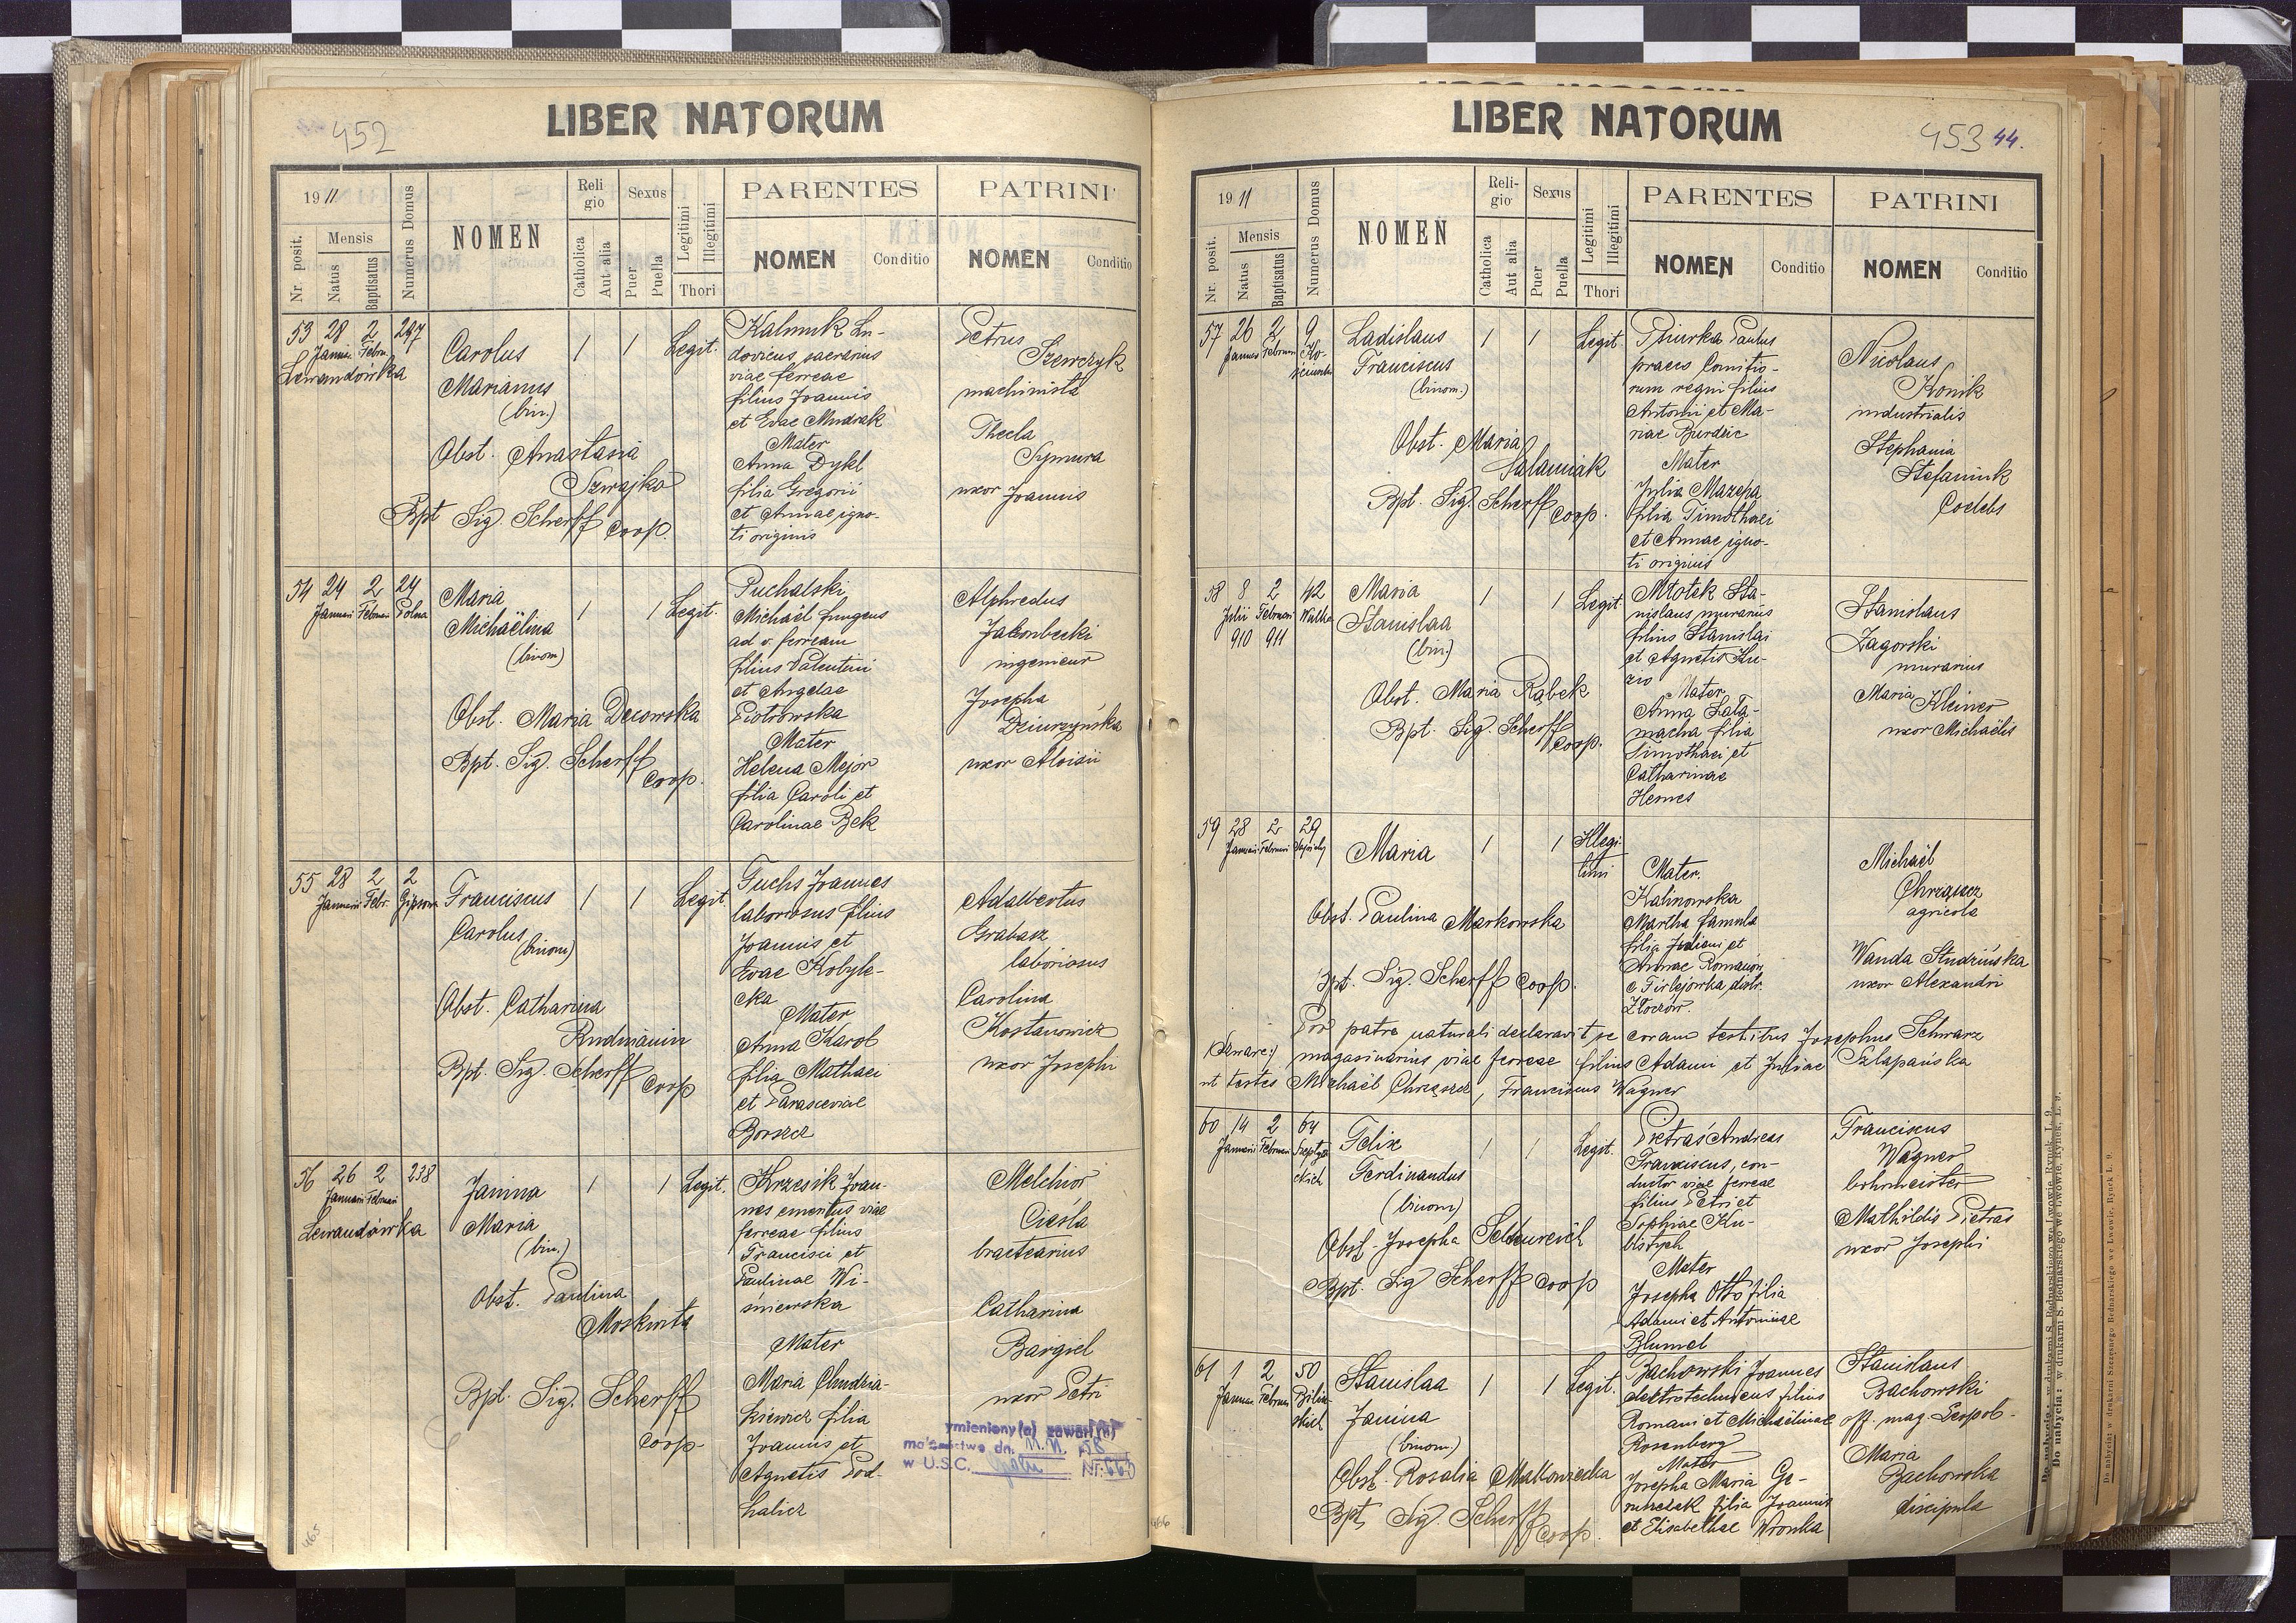 452
LIBER NATORUM
1911
Nr. posit.
Mensis
Natus
Baptisatus
Numerus Domus
NOMEN
Religio
Catholica
Aut alia
Sexus
Puer
Puella
Legitimi
Illegitimi
Thori
PARENTES
NOMEN
Conditio
PATRINI
NOMEN
Conditio
53 28 2 297
Januar. Febru.
Lewandówka
Carolus
Marianus
(bin.)
Obst. Anastasia
Szwajko
Bpt Sig. Scherff Coop.
1 1 Legit.
Kalmuk Lu-
dovicus sacrarius
viae ferreae
filius Joannis
et Evae Mudrak
Mater
Anna Dykl
filia Gregorii
et Annae igno-
ti originis
Petrus
Szewczyk
machinista
Thecla
Symura
uxor Joannis
54 24 2 24
Januari Februari Polna
Maria
Michaëlina
(binom)
Obst. Maria Decowska
Bpt. Sig. Scherff
Coop.
1 1 Legit.
Puchalski
Michaël fungens
ad v. ferream
filius Valentini
et Angelae
Piotrowska
Mater
Helena Mejor
filia Caroli et
Carolinae Bek
Alphredus
Jakubecki
ingenieur
Josepha
Dziurzyńska
uxor Aloisii
55 28 2 2
Januarii Febr. Gipsowa
Franciscus
Carolus
(binom)
Obst. Catharina
Rudmanin
Bpt. Sig. Scherff
Coop
1 1 Legit.
Fuchs Joannes
laboriosus filius
Joannis et
Evae Kobyle-
cka
Mater
Anna Karol
filia Mathaei
et Parasceviae
Borszcz
Adalbertus
Grabasz
laboriosus
Carolina
Kostanowicz
uxor Josephi
56 26 2 238
Januari Februari
Lewandówka
Janina
Maria
(bin.)
Obst. Paulina
Moskwita
Bpt. Sig. Scherff
Coop.
1 1 Legit.
Krzesik Joan-
nes emeritus viae
ferreae filius
Francisci et
Paulinae Wi-
śniewska
Mater
Maria Chudzia-
kiewicz filia
Joannis et
Agnetis Pod-
halicz
Melchior
Cieśla
bractearius
Catharina
Bargiel
uxor Petri
ymieniony(a) zawarł(a)
małżeństwo dn. 58
w U.S.C.
465
LIBER NATORUM
453 44.
1911
Nr. posit.
Mensis
Natus
Baptisatus
Numerus Domus
NOMEN
Religio
Catholica
Aut alia
Sexus
Puer
Puella
Legitimi
Illegitimi
Thori
PARENTES
NOMEN
Conditio
PATRINI
NOMEN
Conditio
57 26 2 9
Januar Februari
Ladislaus
Franciscus
(binom.)
Obst. Maria
Salamiak
Bpt. Sig. Scherff Coop.
1 1 Legit.
Psiurka Paulus
praeco Comitio-
rum regni filius
Antonii et Ma-
riae Burdzic
Mater
Julia Mazepa
filia Timothaei
et Annae igno-
ti originis
Nicolaus
Konik
industrialis
Stephania
Stefaniuk
Coelebs
58 8 2 42
Julii Februari
910 911
Maria
Stanislaa
(bin.)
Obst. Maria Rąbek
Bpt. Sig. Scherff
Coop.
1 1 Legit.
Młotek Sta-
nislaus murarius
filius Stanislai
et Agnetis Ku-
zio
Mater
Anna Łata-
macha filia
Timothaei et
Catharinae
Hemes
Stanislaus
Zagorski
murarius
Maria Kleiner
uxor Michaëlis
59 28 2 29
Januari Februari Sapiehy
Maria
Obst. Paulina Markowska
Bpt. Sig. Scherff Coop.
1 1 Illegi-
timi
Mater.
Kalinowska
Martha famula
filia Juliani et
Annae Romanów
e Firlejówka distr.
Złoczów.
Michaël
Chrząszcz
agricola
Wanda Studzińska
uxor Alexandri
Pro patre naturali declaravit se coram testibus Josephus Schwarz
magasinarius viae ferreae filius Adami et Juliae Szlapańska
ut testes Michaël Chrząszcz, Franciscus Wagner
60 14 2 64
Januari Februari Szeptyc-
ckich
Felix
Ferdinandus
(binom)
Obst. Josepha
Bpt. Sig Scherff Coop
1 1 Legit.
Pietraś Andreas
Franciscus, con-
ductor viae ferreae
filius Petri et
Sophiae Ku-
blistych
Mater
Josepha Otto filia
Adami et Antoninae
Blumel
Franciscus
Wagner
bohrmeister
Mathildis Pietras
uxor Josephi
61 1 2 50
Januar Februar Biliń-
skich
Stanislaa
Janina
(binom.)
Obst. Rosalia Małkowiecka
Bpt. Sig. Scherff
Coop.
1 1 Legit.
Bachowski Joannes
elektrotechnicus filius
Romani et Michaëlinae
Rosenberg
Mater
Josepha Maria Ga-
ruszczak filia Joannis
et Elisabethae Wronka
Stanislaus
Bachowski
off. mag. Leopol.
Maria
Bachowska
discipula
466
Do nabycia: w drukarni S. Bednarskiego we Lwowie, Rynek, L. 9.
Do nabycia: w drukarni S. Bednarskiego we Lwowie, Rynek, L. 9.
Do nabycia: w drukarni Szczęsnego Bednarskiego we Lwowie, Rynek L. 9.